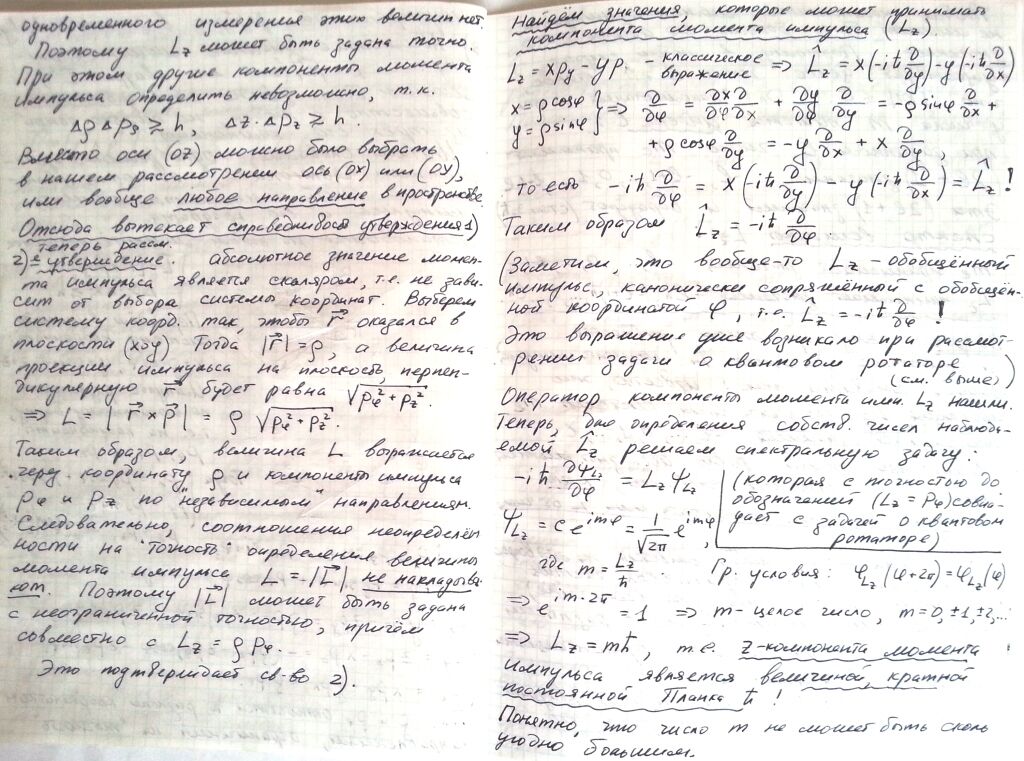 одновременного измерения этих величин нет.
Поэтому L_z может быть задана точно.
При этом другие компоненты момента
импульса определить невозможно, т.к.
Δρ Δp_ρ ≳ h, Δz·Δp_z ≳ h.
Вместо оси (OZ) можно было выбрать
в нашем рассмотрении ось (OX) или (OY),
или вообще любое направление в пространстве.
Отсюда вытекает справедливость утверждения 1)
теперь рассм.
2)-е утверждение. абсолютное значение момен-
та импульса является скаляром, т.е. не зави-
сит от выбора системы координат. Выберем
систему коорд. так, чтобы r⃗ оказался в
плоскости (xOy) Тогда |r⃗| = ρ, а величина
проекции импульса на плоскость, перпен-
дикулярную r⃗ будет равна √(p_φ² + p_z²).
⇒ L = |r⃗ × p⃗| = ρ √(p_φ² + p_z²).
Таким образом, величина L выражается
через координату ρ и компоненты импульса
p_φ и p_z по "независимым" направлениям.
Следовательно, соотношения неопределён-
ности на "точность" определения величины
момента импульса L = |L⃗| не накладыва-
ют. Поэтому |L⃗| может быть задана
с неограниченной точностью, причём
совместно с L_z = ρ p_φ.
Это подтверждает св-во 2).
Найдём значения, которые может принимать
компонента момента импульса (L_z).
L_z = xp_y - yp. - классическое выражение ⇒ L̂_z = x(-iħ ∂/∂y) - y(-iħ ∂/∂x)
x = ρ cosφ
y = ρ sinφ } ⇒ ∂/∂φ = ∂x/∂φ ∂/∂x + ∂y/∂φ ∂/∂y = -ρ sinφ ∂/∂x +
+ ρ cosφ ∂/∂y = -y ∂/∂x + x ∂/∂y,
то есть -iħ ∂/∂φ = x(-iħ ∂/∂y) - y(-iħ ∂/∂x) = L̂_z !
Таким образом L̂_z = -iħ ∂/∂φ
(Заметим, что вообще-то L_z - обобщённый
импульс, канонически сопряжённый с обобщён-
ной координатой φ, т.е. L̂_z = -iħ ∂/∂φ !
Это выражение уже возникало при рассмот-
рении задачи о квантовом ротаторе
(см. выше))
Оператор компоненты момента имп. L_z нашли.
Теперь, для определения собств. чисел наблюда-
емой L̂_z решаем спектральную задачу:
-iħ ∂Ψ_Lz/∂φ = L_z Ψ_Lz
(которая с точностью до
обозначений (L_z = P_φ) совпа-
дает с задачей о квантовом
ротаторе)
Ψ_Lz = c e^{imφ} = 1/√2π e^{imφ},
где m = L_z/ħ. Гр. условия: Ψ_Lz(φ+2π) = Ψ_Lz(φ)
⇒ e^{im·2π} = 1 ⇒ m - целое число, m = 0, ±1, ±2,...
⇒ L_z = mħ, т.е. z-компонента момента
импульса является величиной, кратной
постоянной Планка ħ !
Понятно, что число m не может быть сколь
угодно большим.